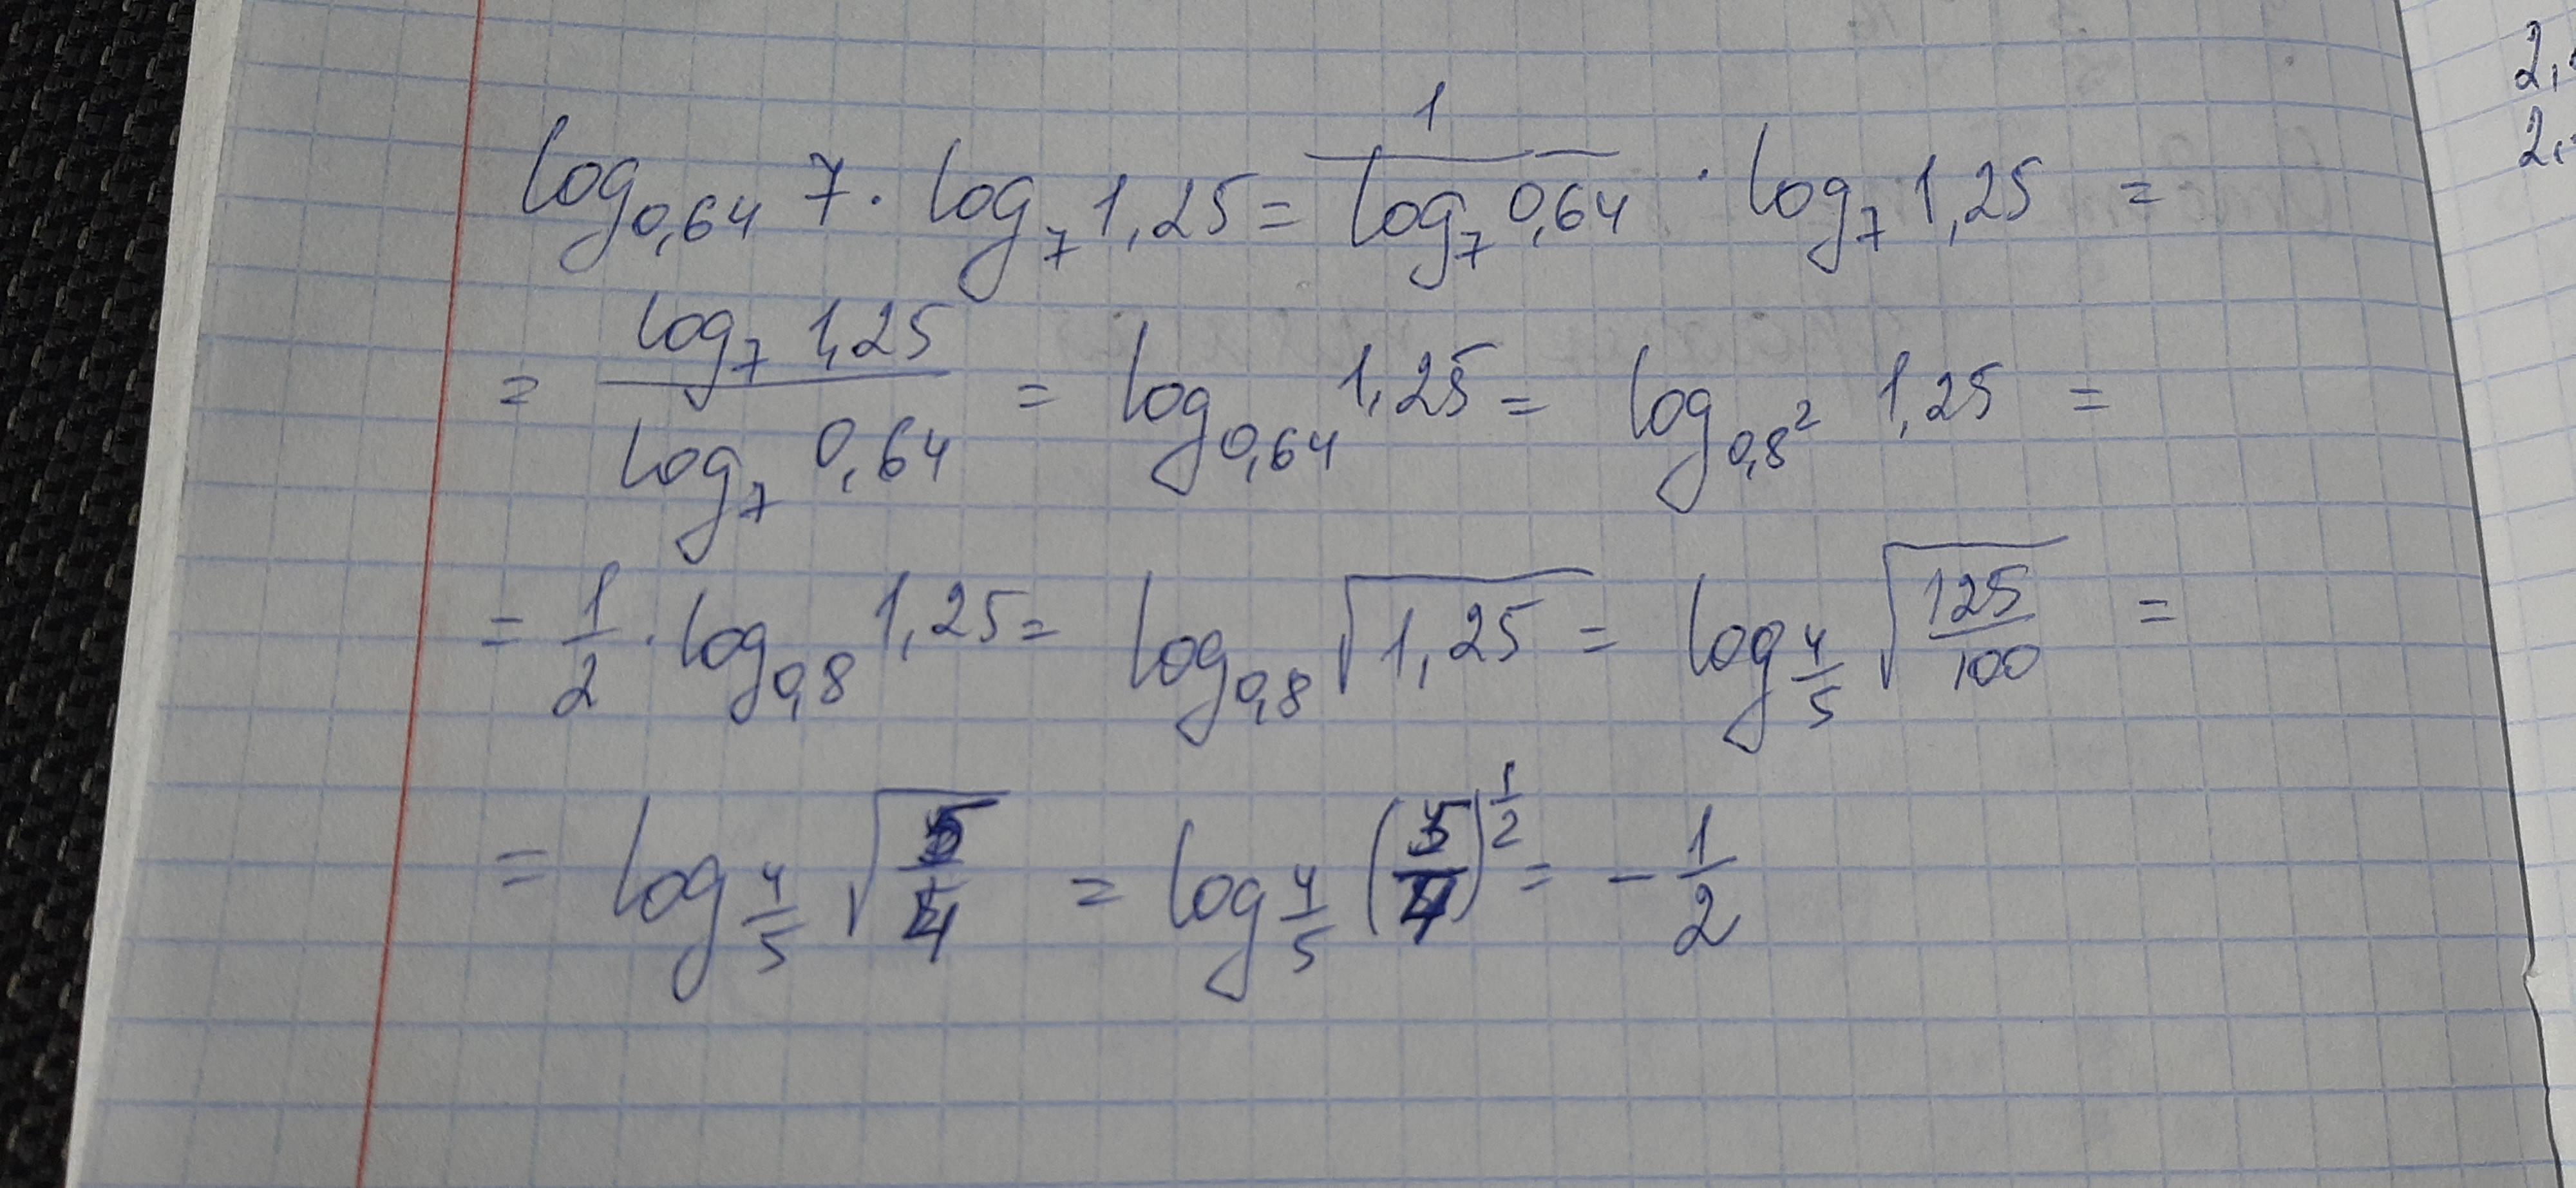 log_{0,64} 7 · log_7 1,25 = \frac{1}{log_7 0,64} · log_7 1,25 =
= \frac{log_7 1,25}{log_7 0,64} = log_{0,64} 1,25 = log_{0,8^2} 1,25 =
= \frac{1}{2} · log_{0,8} 1,25 = log_{0,8} \sqrt{1,25} = log_{\frac{4}{5}} \sqrt{\frac{125}{100}} =
= log_{\frac{4}{5}} \sqrt{\frac{5}{4}} = log_{\frac{4}{5}} (\frac{5}{4})^{\frac{1}{2}} = -\frac{1}{2}